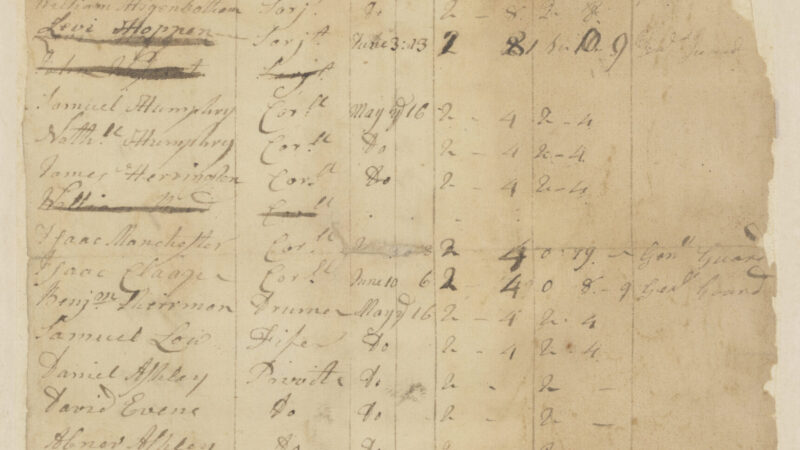 William Higenbotham Sarjt Do 2 - 8 2 - 8
Levi Hoppen Sarjt June 3: 13 2 8 10 9
John Sarjt
Samuel Humphry Corll May 16 2 - 4 2 - 4
Nathll Humphry Corll Do 2 - 4 2 - 4
James Herrington Corll Do 2 - 4 2 - 4
William Corll
Isaac Manchester Corll 8 2 4 0 : 19 - Genll Guard
Isaac Claage Corll June 10 6 2 - 4 0 8 - 9 Genll Guard
Benjm Drumer May 16 2 - 4 2 - 4
Samuel Low Fife Do 2 - 4 2 - 4
Daniel Ashley Privitte Do 2 - 2 -
David Evens Do Do 2 - 2 -
Abner Ashley Do Do